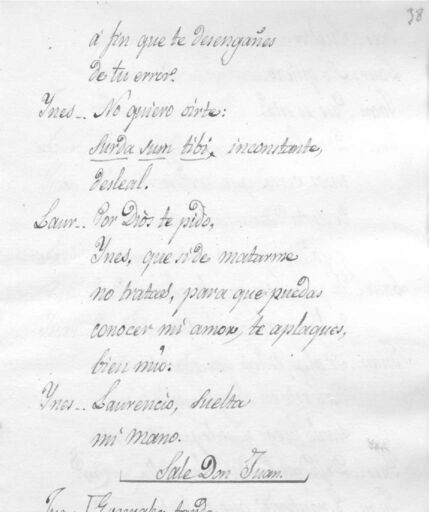 38
á fin que te desengañes
de tu error.
Ynes.. No quiero oirte:
surda sum tibi, inconstante,
desleal.
Laur.. Por Dios te pido,
Ynes, que si de matarme
no tratas, para que puedas
conocer mi amor, te aplaques,
bien mio.
Ynes.. Laurencio, suelta
mi mano.
Sale Don Juan.